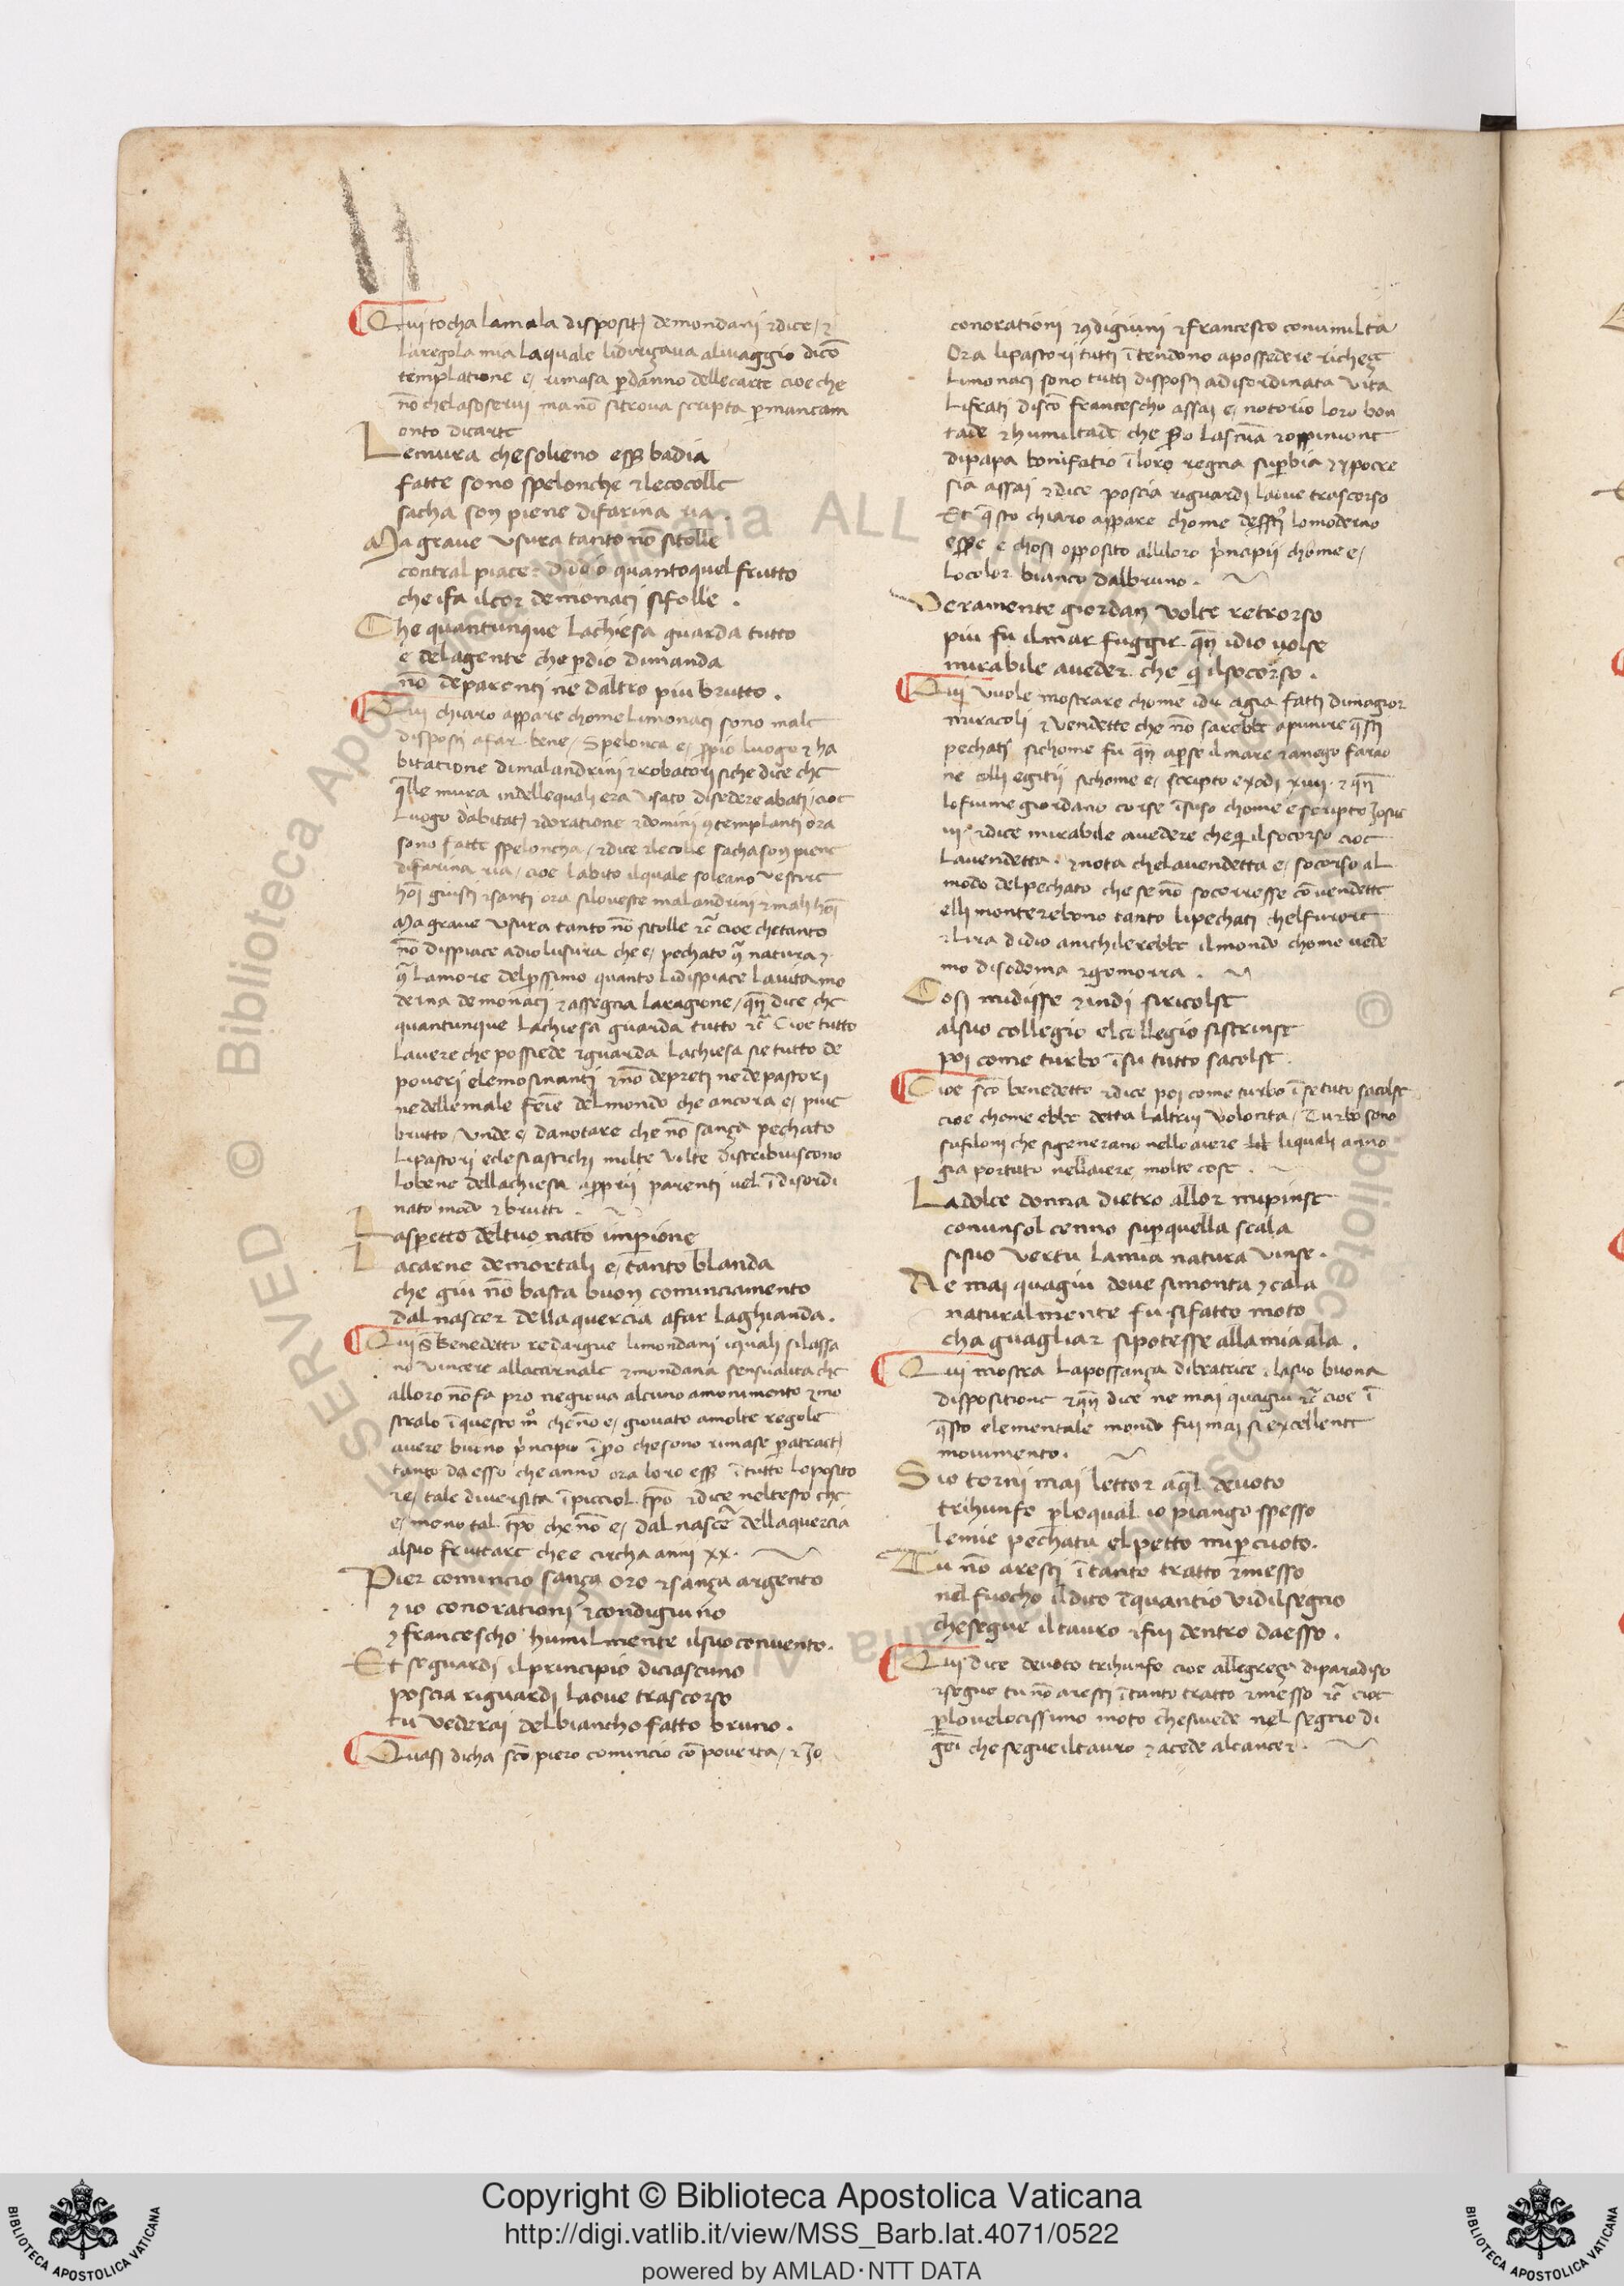 Qui tocha lamala disposit(i) demondani ⁊dice / ⁊
laregola mia laquale lidiriçaua aluiaggio dicō
templatione e / rimasa p̱dānno dellecarte cioe che
nō chelasoserui manō sitroua scripta p̱mancam
onto dicarte
Lemura chesolieno eſſ̱ badia
fatte sono spelonche ⁊lecocolle
sacha son piene difarina ria .
Ma graue vsura tanto nō sitolle
contral piacer didio quantoquel frutto
che ifa ilcor demonaci sifolle .
Che quantunque lachiesa guarda tutto
e delagente che p̱dio dimanda
nō deparenti ne daltro piu brutto .
Qui chiaro appare chome limonaci sono male
disposti afar bene / Spelonca e / p̱pio luogo ⁊ ha
bitatione dimalandrini ⁊robatori siche dice che
q̄lle mura indellequali era vsato disedere abati / cioe
Luogo dabitat(i) ⁊doratione ⁊domini ꝯtemplanti ora
sono fatte speloncha / ⁊dice ⁊lecolle sachason piene
difarina ria / cioe labito ilquale soleano vestire
hōi giusti ⁊santi ora siloueste malandrini ⁊mali hōi
Ma graue vsura tanto nō sitolle ⁊c̄ cioe chetanto
nō dispiace adio lusura che e / pechato ꝯ̄ natura ⁊
ꝯ̄ lamore delp̱ssimo quanto lidispiace lauita mo
derna demonaci ⁊assegna laragione / qn̄ dice che
quantunque lachiesa guarda tutto ⁊c̄ Cioe tutto
lauere che possiede ⁊guarda lachiesa sie tutto de
poueri elemosinanti ⁊nō depreti ne depastori
nedellemale feīe delmondo che ancora e / piue
brutto / vnde e / danotare che nō sança pechato
lipastori eclesiastichi molte volte distribuiscono
lobene dellachiesa app̱rii parenti uel ī disordi
nato modo ⁊ brutti .
Laspetto deltuo nato imp̱ione
Lacarne demortali e / tanto blanda
che giu nō basta buon cominciamento
dal nascer dellaquercia afar laghianda .
Qui .S. Benedetto redargue limondani iquali silassa
no vincere allacarnale ⁊mondana sensualita che
alloro nōfa pro negioua alcuno amonimento ⁊mo
stralo ī questo mō̱ chenō e / giouato amolte regole
auere buono p̱ncipio īp̱o chesono rimase p̱atract(i)
tanto da esso che anno ora loro eſſ̱ ī tutto loposito
re / tale diuersita ī picciol tp̄o ⁊dice neltesto che
e / meno tal tp̄o che nō e / dal nascer dellaquercia
alsuo fruttare che e circha anni xx .
Pier comincio sança oro ⁊sança argento
⁊ io conorationi ⁊condigiuno
⁊ francescho humilmente ilsuoconuento .
Et seguardi ilprincipio diciascuno
poscia riguardi laoue trascorso
tu vederai delbiancho fatto bruno .
Quasi dicha scō piero comincio cō pouerta / ⁊ Io
conorationi ⁊ꝯdigiuni ⁊francesco conumilta
Ora lipastori tutti ītendono apossedere richeç
Limonaci sono tutti disposti adisordinata vita
Lifrati discō francescho assai e / notorio loro bon
tade ⁊humiltade che p̱o lascua ⁊oppinione
dipapa bonifatio ī loro regna sup̱bia ⁊ ypocre
sia assai ⁊dice poscia riguardi laiue trascorso
Et q̄sto chiaro appare chome deffī lomoderno
eſſ̱e e chosi opposito alliloro p̱ncipii chome e /
locolor bianco dalbruno .
Veramente giordan volte retrorso
piu fu ilmar fuggir qn̄ idio volse
mirabile aueder che q̄ ilsocorso .
Qui vuole mostrare chome idio agia fatti dimagior
miracoli ⁊vendette che nō sarebbe apunire q̄sti
pechati sichome fu qn̄ ap̱se ilmare ⁊anego farao
ne colli egitii sichome e / scripto exodi xiiii . ⁊ qn̄
lofiume giordano corse īsuso chome e scripto Josue
iii . ⁊dice mirabile auedere cheq̄ ilsocorso cioe
lauendetta . ⁊nota chelauendetta e / socorso al
modo delpechato che se nō socorresse cō vendette
elli monterebono tanto lipechati chelfurore
⁊lira didio anichilerebbe ilmondo chome uede
mo disodoma ⁊gomorra .
Cosi midisse ⁊indi siricolse
alsuo collegio elcollegio sistrinse
poi come turbo īsu tutto sacolse .
Cioe scō benedetto ⁊dice poi come turbo īsetuto sacolse
cioe chome ebbe detta laltrui volonta / Turbo sono
sufiloni che sigenerano nelloaiere liquali anno
gia portato nellaiere molte cose .
Ladolce donna dietro allor mipinse
conunsol cenno sup̱quella scala
sisuo vertu lamia natura vinse .
Ne mai quagiu doue simonta ⁊ cala
naturalmente fu sifatto moto
cha guagliar sipotesse allamia ala .
Qui mostra lapossança dibeatrice . lasuo buona
dispositione ⁊qn̄ dice ne mai quagiu ⁊c̄ cioe ī
q̄sto elementale mondo fui mai si excellente
mouimento .
Sio torni mai lettor aq̄l deuoto
trihunfo p̱loqual io piango spesso
lemie pechata elpetto mip̱cuoto .
Tu nō aresti ītanto tratto ⁊messo
nel fuocho ildito īquantio vidilsegno
chesegue iltauro ⁊fui dentro daesso .
Qui dice deuoto trihunfo cioe allegreça diparadiso
⁊segue tu nō aresti ītanto tratto ⁊messo ⁊c̄ cioe
p̱louelocissimo moto chesiuede nel segno di
geī che segueiltauro ⁊ acede alcancer .
Copyright © Biblioteca Apostolica Vaticana
http://digi.vatlib.it/view/MSS_Barb.lat.4071/0522
powered by AMLAD·NTT DATA
BIBLIOTECA APOSTOLICA VATICANA
BIBLIOTECA APOSTOLICA VATICANA